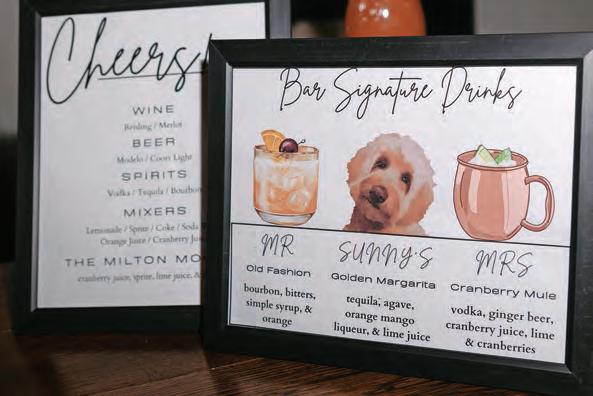 Cheers!
WINE
Reisling / Merlot
BEER
Modelo / Coors Light
SPIRITS
Vodka / Tequila / Bourbon
MIXERS
Lemonade / Sprite / Coke / Soda
Orange Juice / Cranberry
THE MILTON
cranberry juice, sprite, lime juice, &
Bar Signature Drinks
MR
Old Fashion
bourbon, bitters,
simple syrup, &
orange
SUNNY'S
Golden Margarita
tequila, agave,
orange mango
liqueur, & lime juice
MRS
Cranberry Mule
vodka, ginger beer,
cranberry juice, lime
& cranberries